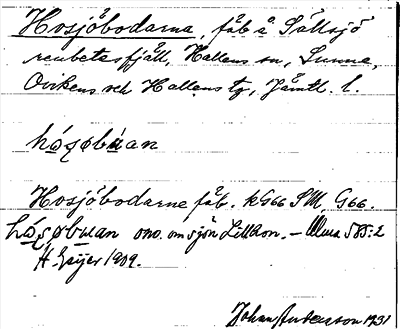 Hosjöbodarna, fäb å Sällsjö
renbetesfjäll, Hallens sn, Sunne,
Ovikens och Hallens tg, Jämtl. l.
håʂøbuan
Hosjöbodarne fäb. kG66 SM, G66.
håʂøbuan ono. om sjön Lillhon. – Ulma 585:2
H. Geijer 1909.
Johan Andersson 1931